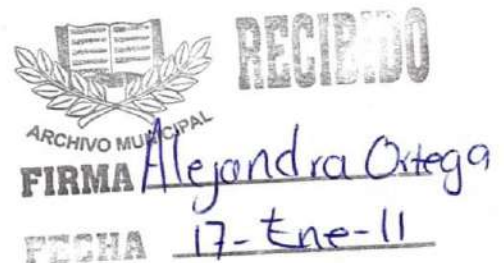 RECIBIDO
ARCHIVO MUNICIPAL
FIRMA Alejandra Ortega
FECHA 17-Ene-11